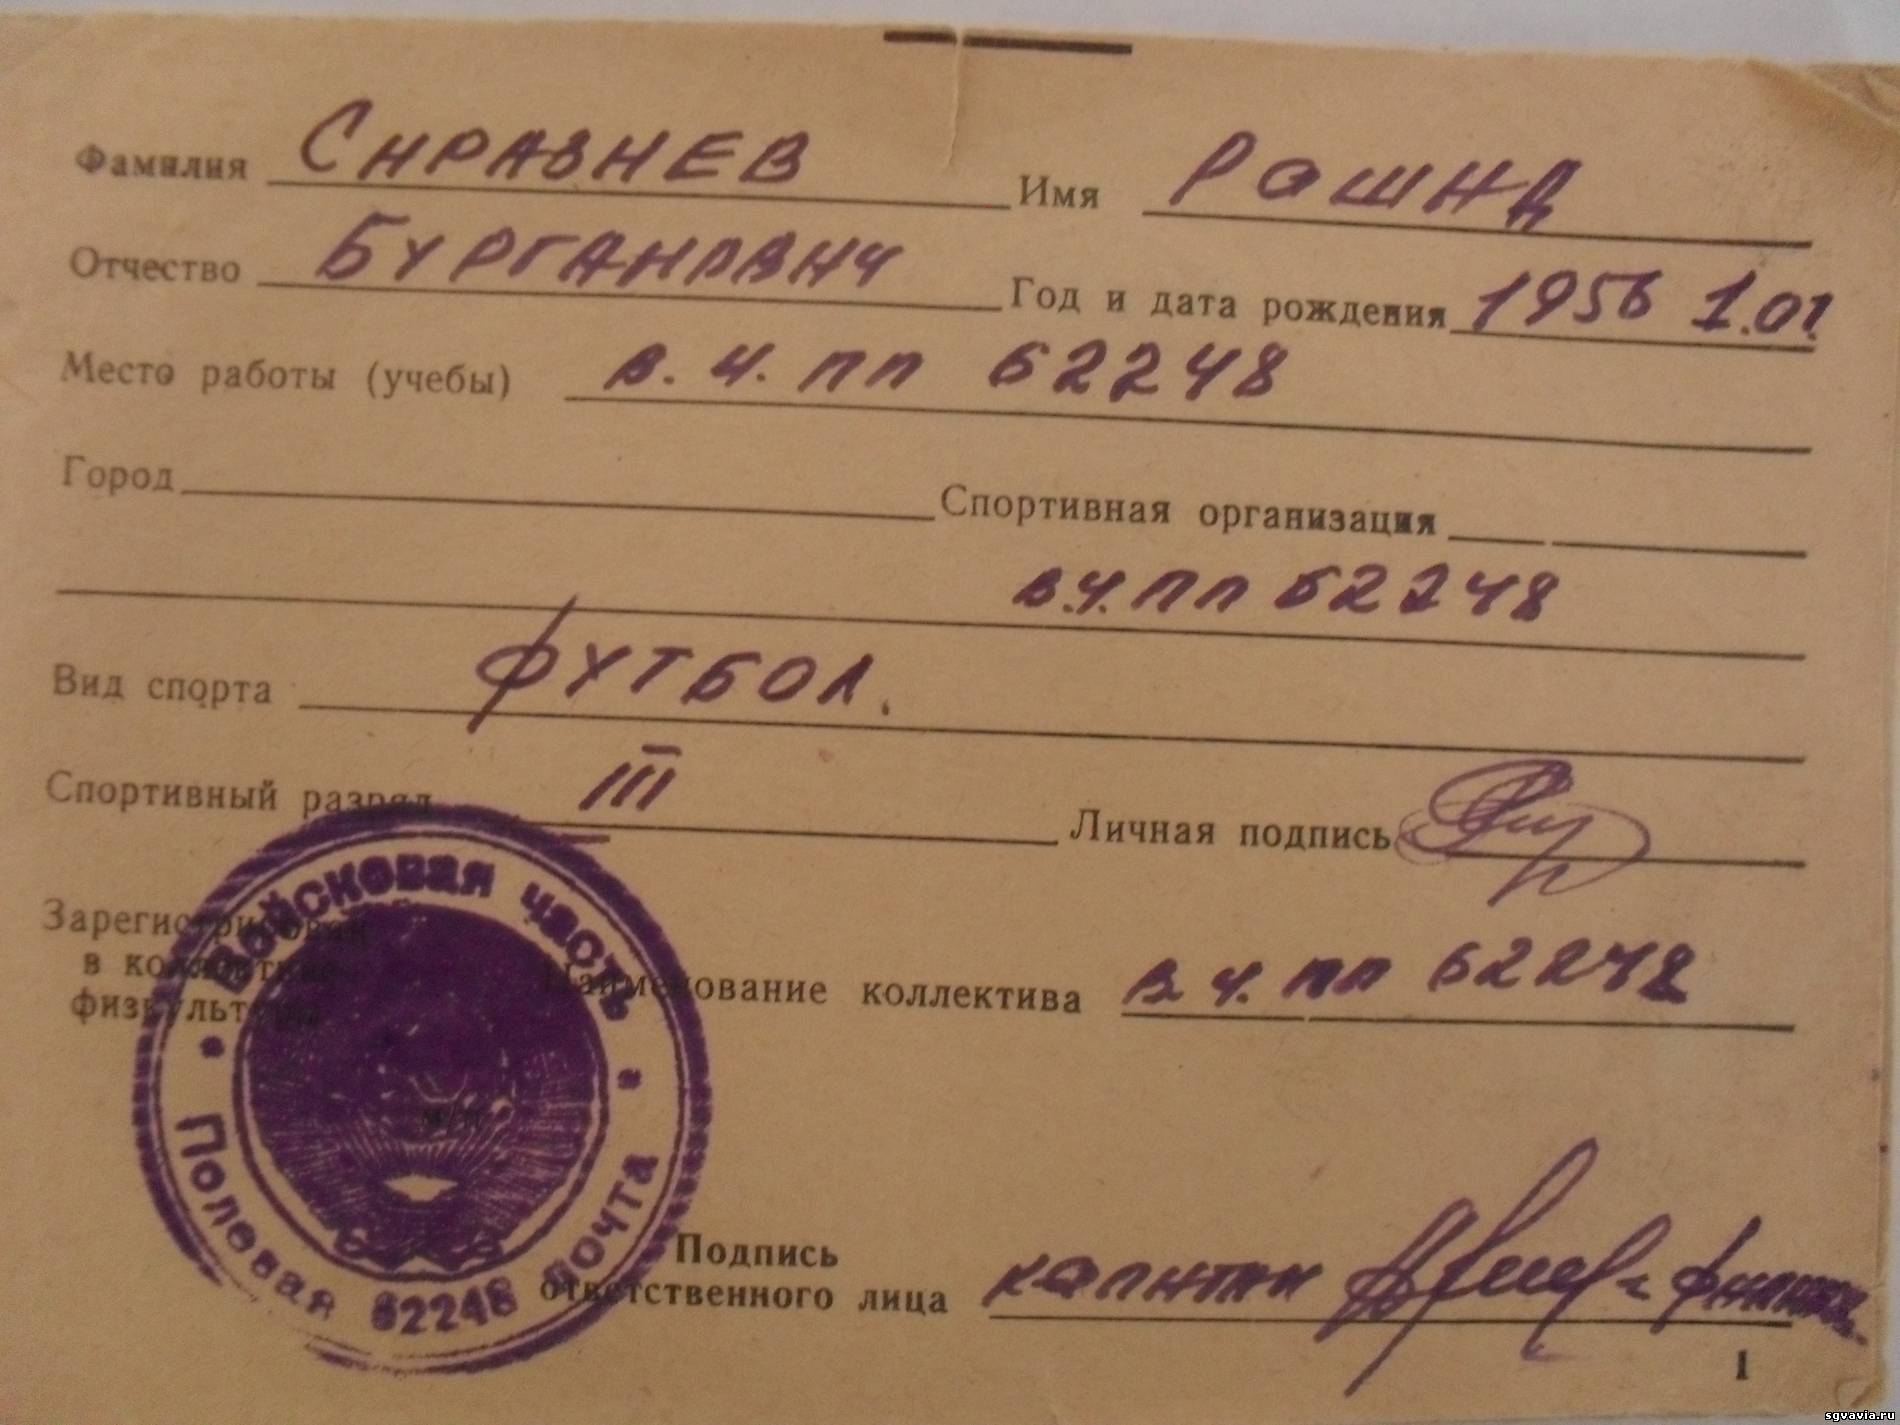 Фамилия Сиразиев Имя Рашид
Отчество Бурганович Год и дата рождения 1956 1.01.
Место работы (учебы) в.ч. пп 62248
Город Спортивная организация
в.ч. пп 62248
Вид спорта футбол.
Спортивный разряд III Личная подпись
Зарегистрирован
в коллективе
физкультуры
Наименование коллектива в ч. пп 62248
М/П
Войсковая часть
Полевая почта 62248
Подпись
ответственного лица капитан
1
sgvavia.ru